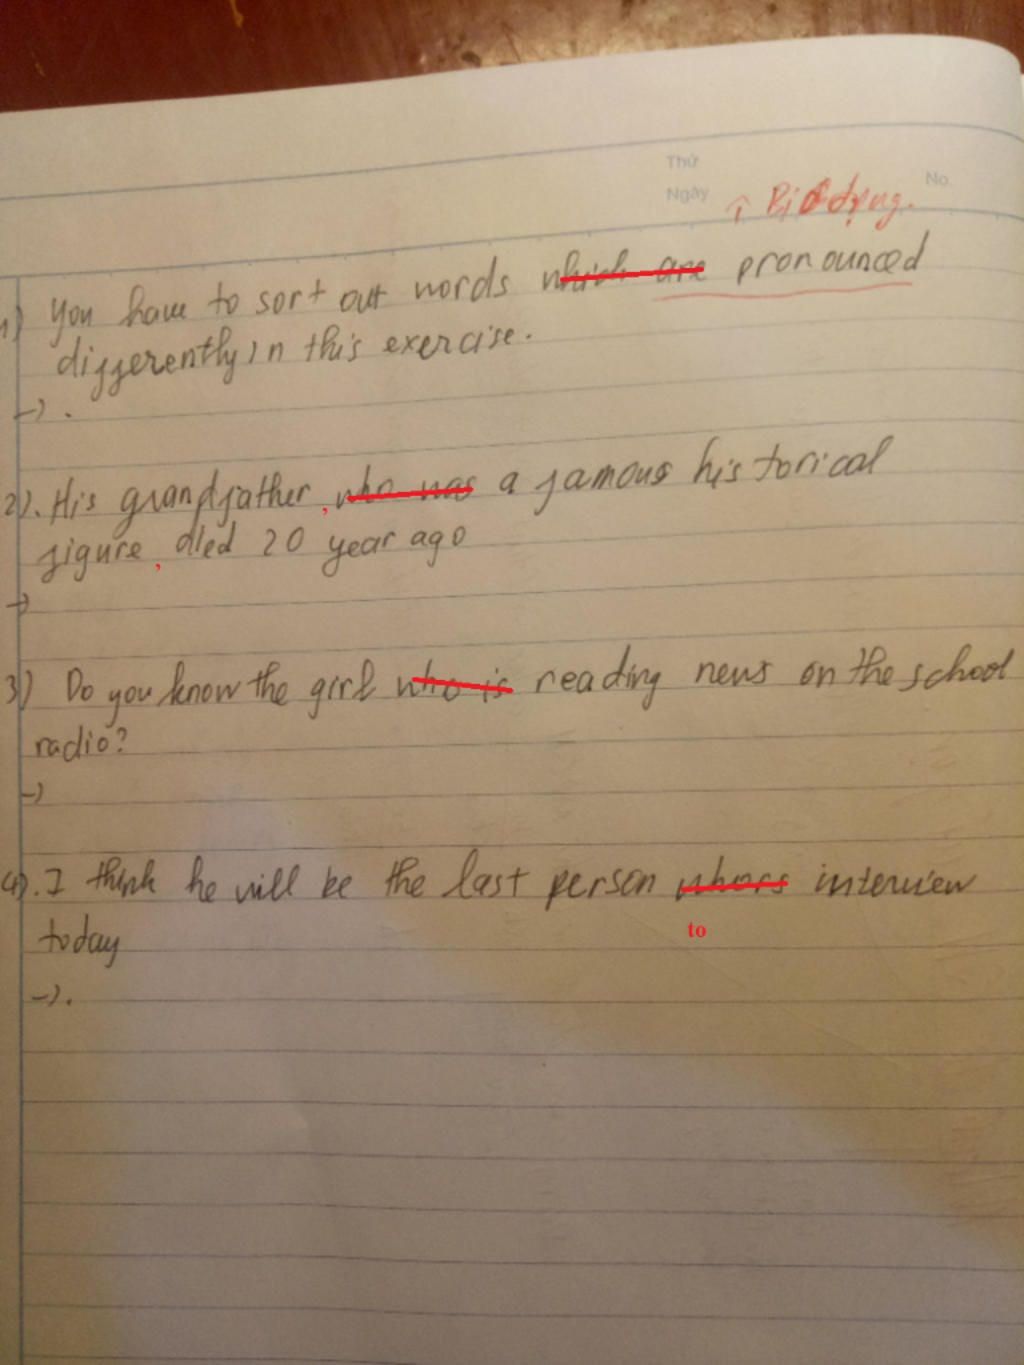 Thứ
Ngày
No.
↑ Bị động.
1) You have to sort out words which are pronounced
differently in this exercise.
→ .
2). His grandfather, who was a famous historical
figure, died 20 year ago
→
3) Do you know the girl who is reading news on the school
radio?
→
4). I think he will be the last person interview
to
today
→.